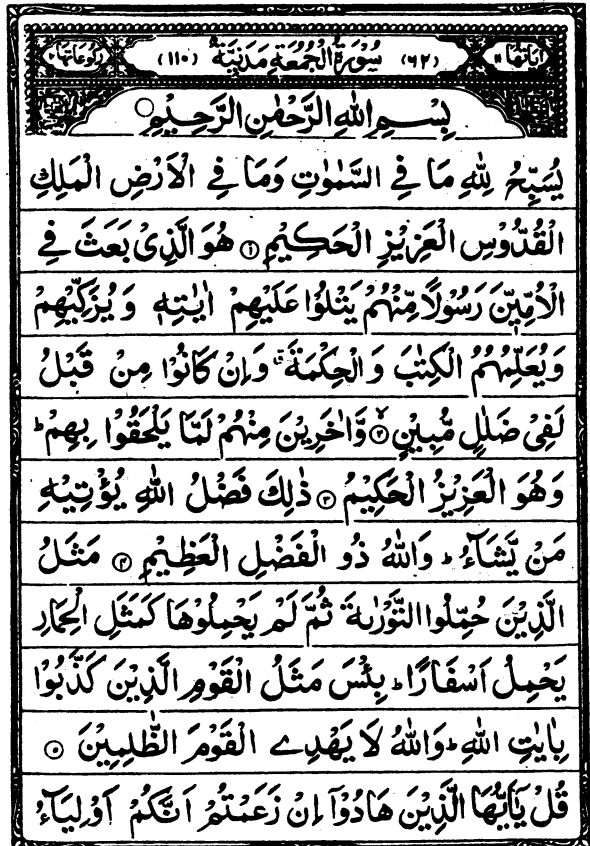 اٰيَاتُهَا ١١ (٦٢) سُوْرَةُ الْجُمُعَةِ مَدَنِيَّةٌ (١١٠) رُكُوْعَاتُهَا ٢
بِسْمِ اللّٰهِ الرَّحْمٰنِ الرَّحِيْمِ
يُسَبِّحُ لِلّٰهِ مَا فِي السَّمٰوٰتِ وَمَا فِي الْاَرْضِ الْمَلِكِ
الْقُدُّوْسِ الْعَزِيْزِ الْحَكِيْمِ ۝١ هُوَ الَّذِيْ بَعَثَ فِي
الْاُمِّيّٖنَ رَسُوْلًا مِّنْهُمْ يَتْلُوْا عَلَيْهِمْ اٰيٰتِهٖ وَيُزَكِّيْهِمْ
وَيُعَلِّمُهُمُ الْكِتٰبَ وَالْحِكْمَةَ ۗ وَاِنْ كَانُوْا مِنْ قَبْلُ
لَفِيْ ضَلٰلٍ مُّبِيْنٍ ۝٢ وَّاٰخَرِيْنَ مِنْهُمْ لَمَّا يَلْحَقُوْا بِهِمْ ؕ
وَهُوَ الْعَزِيْزُ الْحَكِيْمُ ۝٣ ذٰلِكَ فَضْلُ اللّٰهِ يُؤْتِيْهِ
مَنْ يَّشَآءُ ؕ وَاللّٰهُ ذُو الْفَضْلِ الْعَظِيْمِ ۝٤ مَثَلُ
الَّذِيْنَ حُمِّلُوا التَّوْرٰىةَ ثُمَّ لَمْ يَحْمِلُوْهَا كَمَثَلِ الْحِمَارِ
يَحْمِلُ اَسْفَارًا ؕ بِئْسَ مَثَلُ الْقَوْمِ الَّذِيْنَ كَذَّبُوْا
بِاٰيٰتِ اللّٰهِ ؕ وَاللّٰهُ لَا يَهْدِي الْقَوْمَ الظّٰلِمِيْنَ ۝٥
قُلْ يٰۤاَيُّهَا الَّذِيْنَ هَادُوْۤا اِنْ زَعَمْتُمْ اَنَّكُمْ اَوْلِيَآءُ